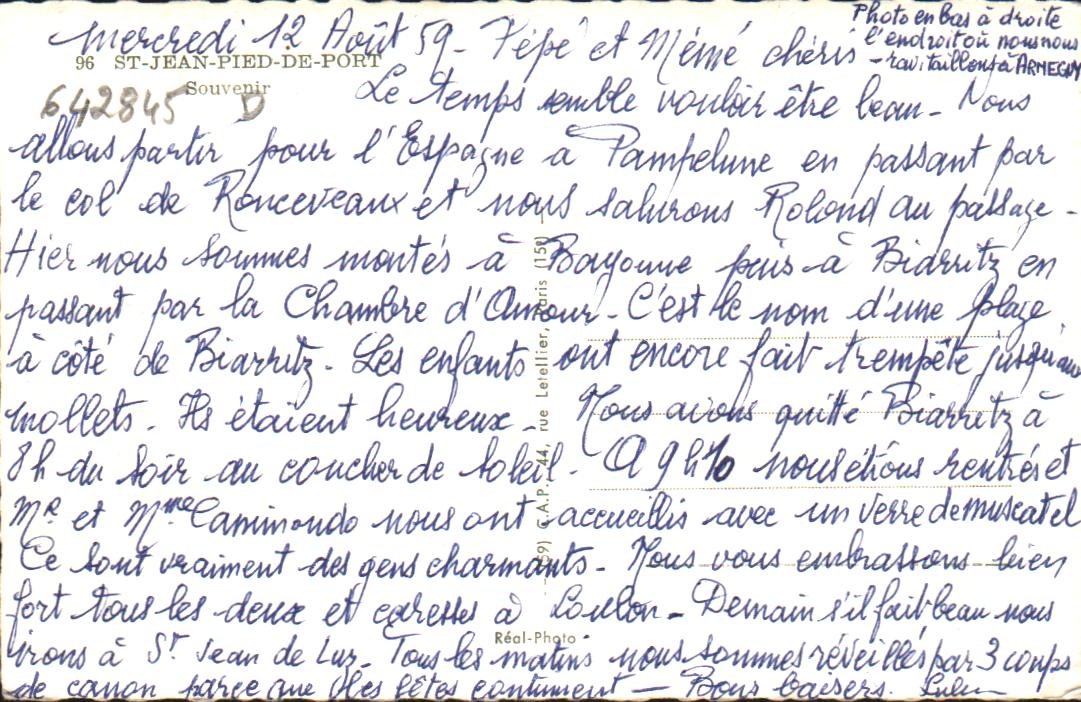 Mercredi 12 Août 59 - Pépé et Mémé chéris
Photo en bas à droite
l'endroit où nous nous
ravitaillons à ARNEGUY
96 ST-JEAN-PIED-DE-PORT
Souvenir
642845 D
Le temps semble vouloir être beau - Nous
allons partir pour l'Espagne à Pampelune en passant par
le col de Ronceveaux et nous salurons Roland au passage -
Hier nous sommes montés à Bayonne puis à Biarritz en
passant par la Chambre d'Amour - C'est le nom d'une plage
à côté de Biarritz - Les enfants ont encore fait trempête jusqu'aux
mollets. Ils étaient heureux - Nous avons quitté Biarritz à
8h du soir au coucher de soleil - A 9h 1/2 nous étions rentrés et
Mr et Mme Camimondo nous ont accueillis avec un verre de muscatel
Ce sont vraiment des gens charmants - Nous vous embrassons bien
fort tous les deux et caresses à Loulou - Demain s'il fait beau nous
irons à St Jean de Luz - Tous les matins nous sommes réveillés par 3 coups
de canon parce que les fêtes continuent — Bons baisers.
C.A.P. - 44, rue Letellier, Paris (15e)
Réal-Photo